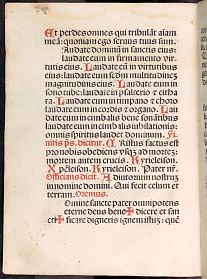 Et perdes omnes qui tribulāt aīam
meā: quoniam ego servus tuus sum.
Laudate dominū in sanctis eius:
laudate eum in firmamento vir-
tutis eius. Laudate eū in virtutibus
eius: laudate eum scdm multitudinez
magnitudinis eius. Laudate eum in
sono tube: laudate eū in psalterio & citha
ra. Laudate eum in timpano & choro
laudate eum in cordis & organo. Lau
date eū in cimbalis bene sonātibus
laudate eum in cimbalis iubilationis:
omnis spiritus laudet dominum.
dicitur. Christus factus est
pro nobis obediens usqz ad mortez:
mortem autem crucis. Kyrieleison.
Xpeleison. Kyrieleison. Pater nr̄.
Officians dicit. Adiutorium nostruz
in nomine domini. Qui fecit celum et
terram. Oremus.
Omnine sancte pater omnipotens
eterne deus bene✠dicere et san
cti✠ficare digneris ignem istuz: quē